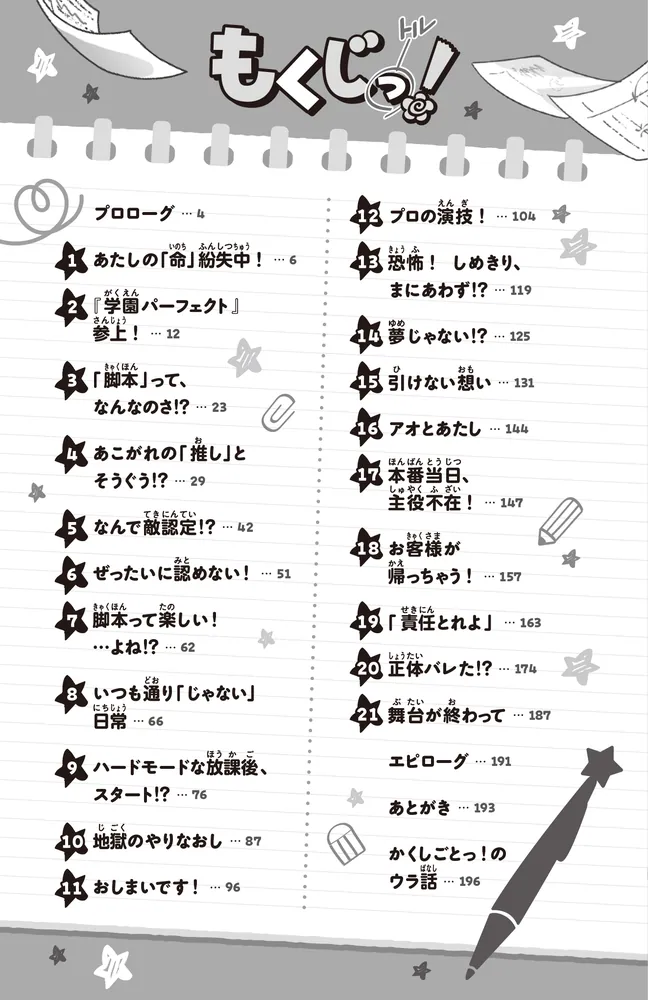 もくじっ!
トル
プロローグ … 4
1 あたしの「命」紛失中! … 6
2 『学園パーフェクト』
参上! … 12
3 「脚本」って、
なんなのさ!? … 23
4 あこがれの「推し」と
そうぐう!? … 29
5 なんで敵認定!? … 42
6 ぜったいに認めない! … 51
7 脚本って楽しい!
…よね!? … 62
8 いつも通り「じゃない」
日常 … 66
9 ハードモードな放課後、
スタート!? … 76
10 地獄のやりなおし … 87
11 おしまいです! … 96
12 プロの演技! … 104
13 恐怖! しめきり、
まにあわず!? … 119
14 夢じゃない!? … 125
15 引けない想い … 131
16 アオとあたし … 144
17 本番当日、
主役不在! … 147
18 お客様が
帰っちゃう! … 157
19 「責任とれよ」 … 163
20 正体バレた!? … 174
21 舞台が終わって … 187
エピローグ … 191
あとがき … 193
かくしごとっ!の
ウラ話 … 196